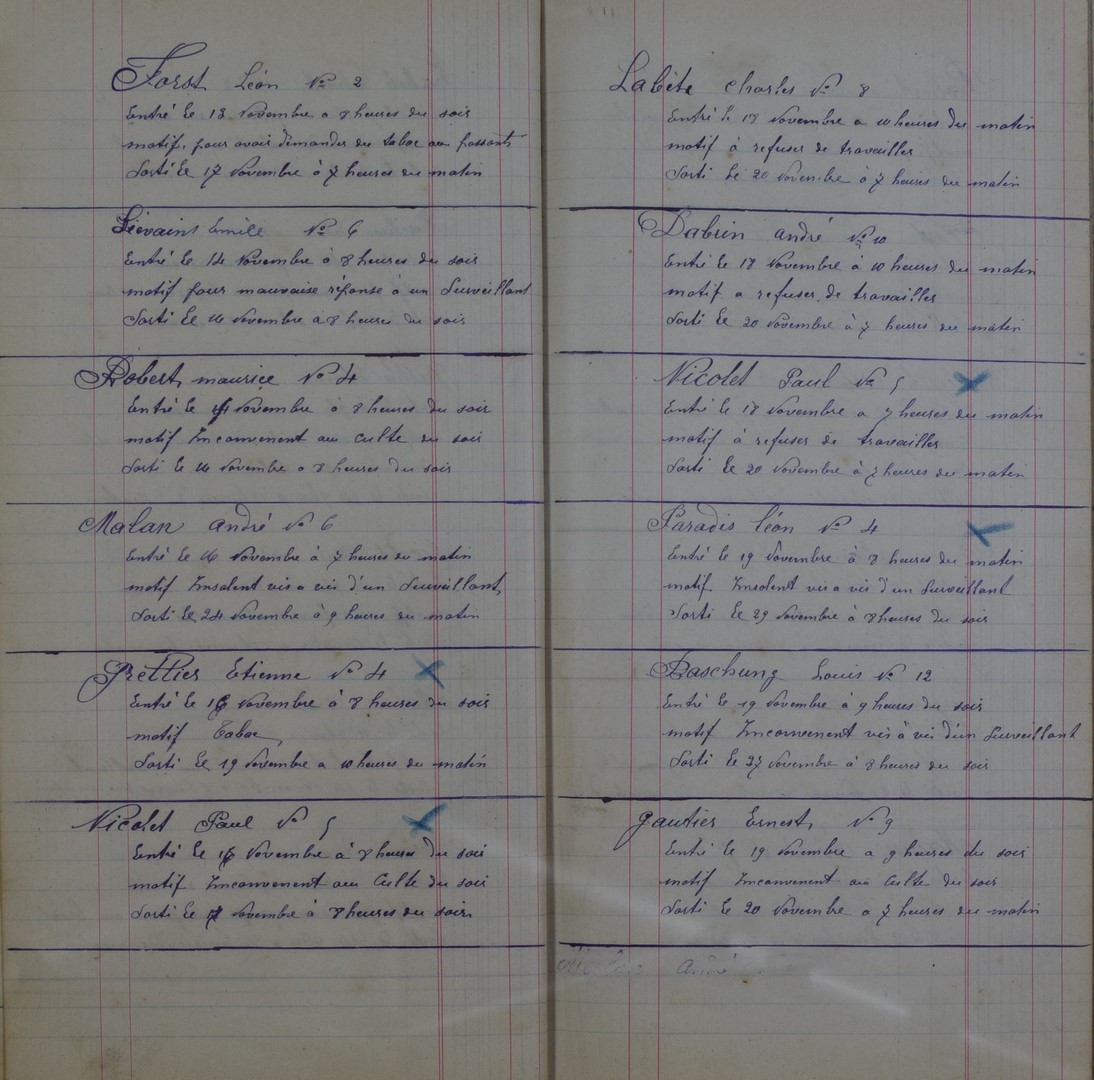 Forst Léon No 2
Entré le 13 Novembre a 8 heures du soir
motif, pour avoir demander du tabac au passant
Sorti le 17 Novembre à 7 heures du matin
Liévains Emile No 6
Entré le 14 Novembre à 8 heures du soir
motif pour mauvaise réponse à un Surveillant
Sorti le 16 Novembre a 8 heures du soir
Robert maurice No 4
Entré le 14 Novembre à 8 heures du soir
motif Inconvenent au culte du soir
Sorti le 16 Novembre a 8 heures du soir
Malan andré No 6
Entré le 16 Novembre à 7 heures du matin
motif Insolent vis a vis d'un Surveillant
Sorti le 24 Novembre à 9 heures du matin
Grettier Etienne No 4
Entré le 16 Novembre à 8 heures du soir
motif Tabac
Sorti le 19 Novembre a 10 heures du matin
Nicolet Paul No 5
Entré le Novembre à 8 heures du soir
motif Inconvenent au Culte du soir
Sorti le 17 Novembre à 8 heures du soir
Labète Charles No 8
Entré le 18 Novembre a 10 heures du matin
motif à refuser de travailler
Sorti le 20 Novembre a 7 heures du matin
Dabrin andré No 10
Entré le 18 Novembre à 10 heures du matin
motif a refuser de travailler
Sorti le 20 Novembre à 7 heures du matin
Nicolet Paul No 5
Entré le 18 Novembre a 7 heures du matin
motif à refuser de travailler
Sorti le 20 Novembre à 7 heures du matin
Paradis léon No 4
Entré le 19 Novembre à 8 heures du matin
motif Insolent vis a vis d'un Surveillant
Sorti le 29 Novembre à 8 heures du soir
Raschung Louis No 12
Entré le 19 Novembre à 9 heures du soir
motif Inconvenent vis à vis d'un Surveillant
Sorti le 27 Novembre à 8 heures du soir
gautier Ernest No 9
Entré le 19 Novembre a 9 heures du soir
motif Inconvenent au Culte du soir
Sorti le 20 Novembre a 7 heures du matin
André